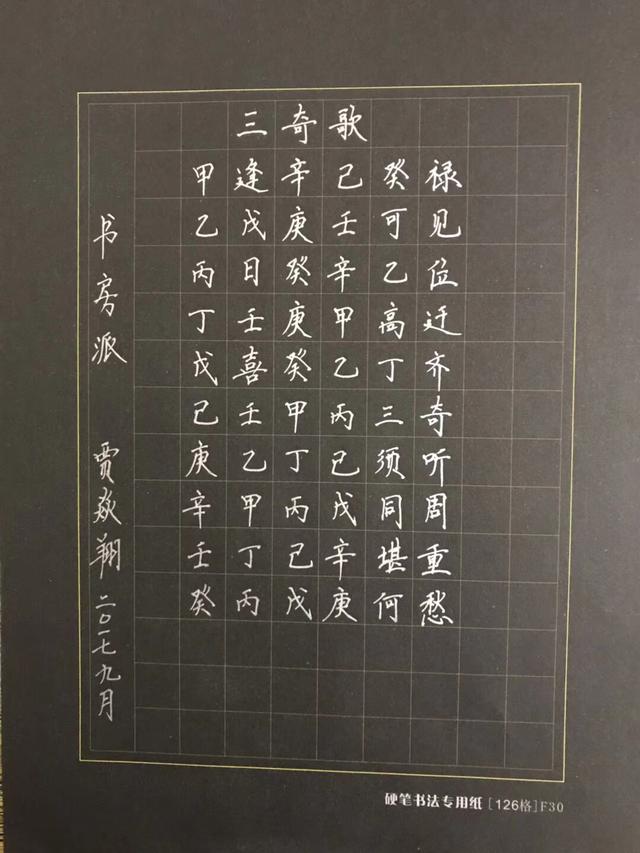 三奇歌
甲逢辛己癸禄
乙戊庚壬可见
丙日癸辛乙位
丁壬庚甲高迁
戊喜癸乙丁齐
己壬甲丙三奇
庚乙丁己须听
辛甲丙戊同周
壬丁己辛堪重
癸丙戊庚何愁
书房派 贾焱翔 二〇一七九月
硬笔书法专用纸 [126格] F30